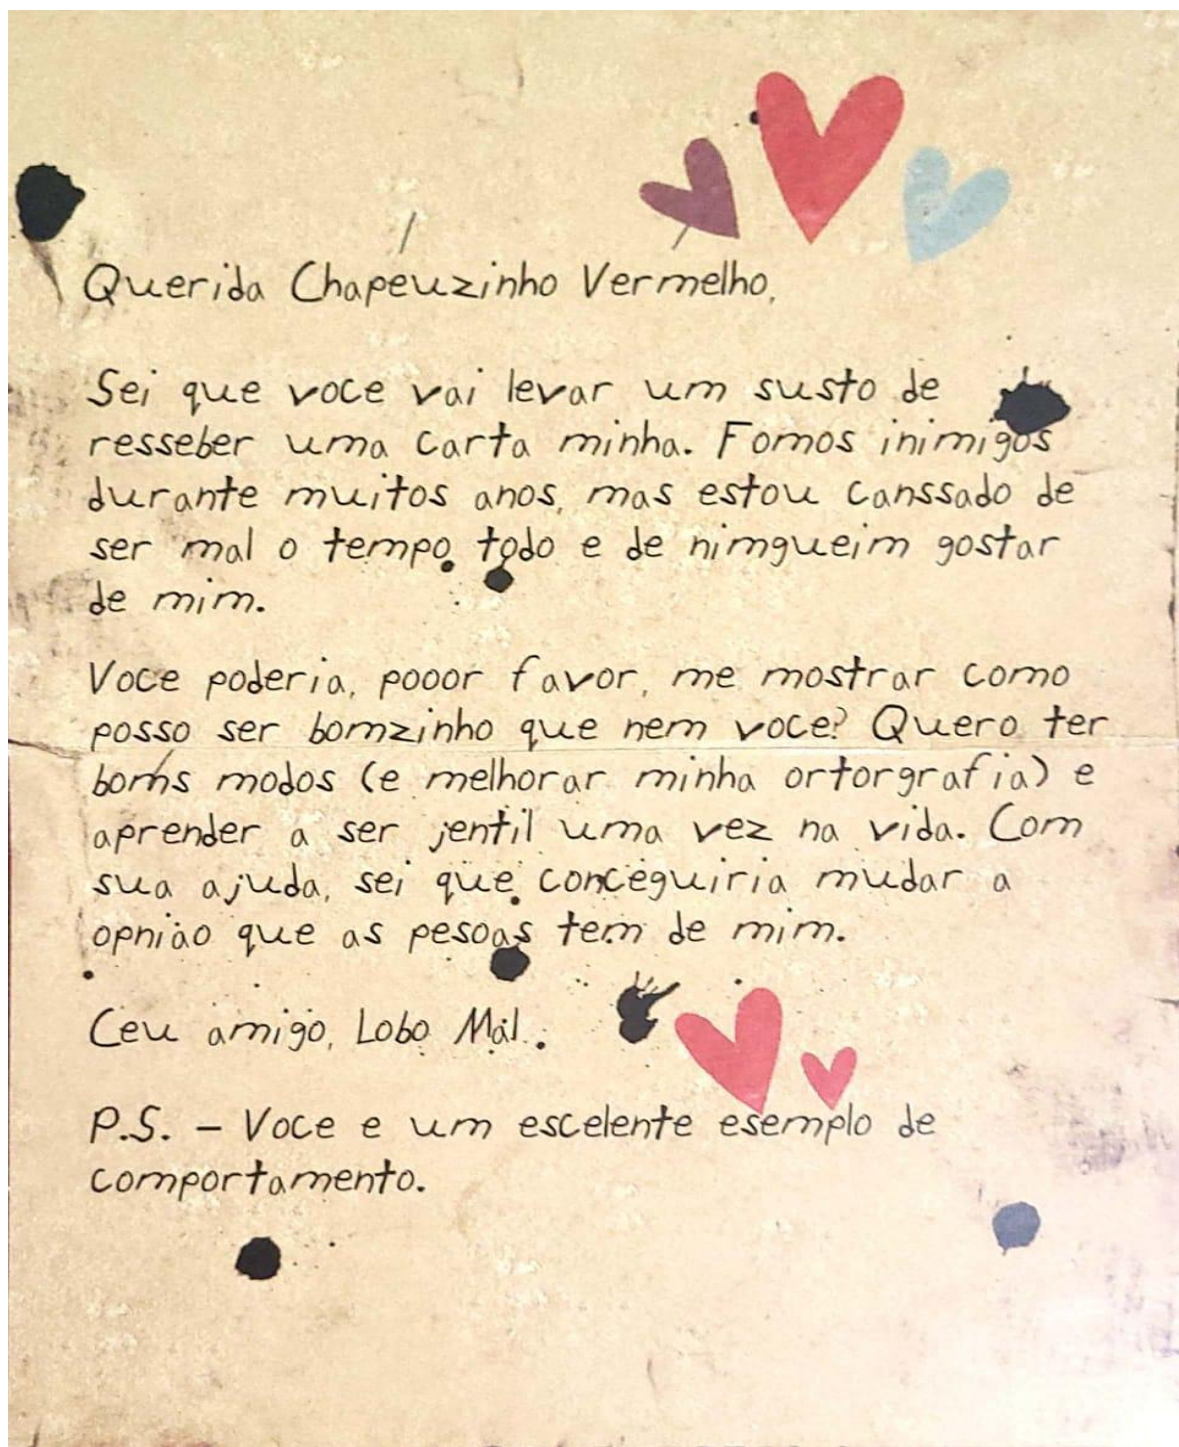 Querida Chapeuzinho Vermelho,
Sei que voce vai levar um susto de
resseber uma carta minha. Fomos inimigos
durante muitos anos, mas estou canssado de
ser mal o tempo todo e de nimgueim gostar
de mim.
Voce poderia, pooor favor, me mostrar como
posso ser bomzinho que nem voce? Quero ter
boms modos (e melhorar minha ortorgrafia) e
aprender a ser jentil uma vez na vida. Com
sua ajuda, sei que conceguiria mudar a
opniao que as pesoas tem de mim.
Ceu amigo, Lobo Mal.
P.S. – Voce e um escelente esemplo de
comportamento.